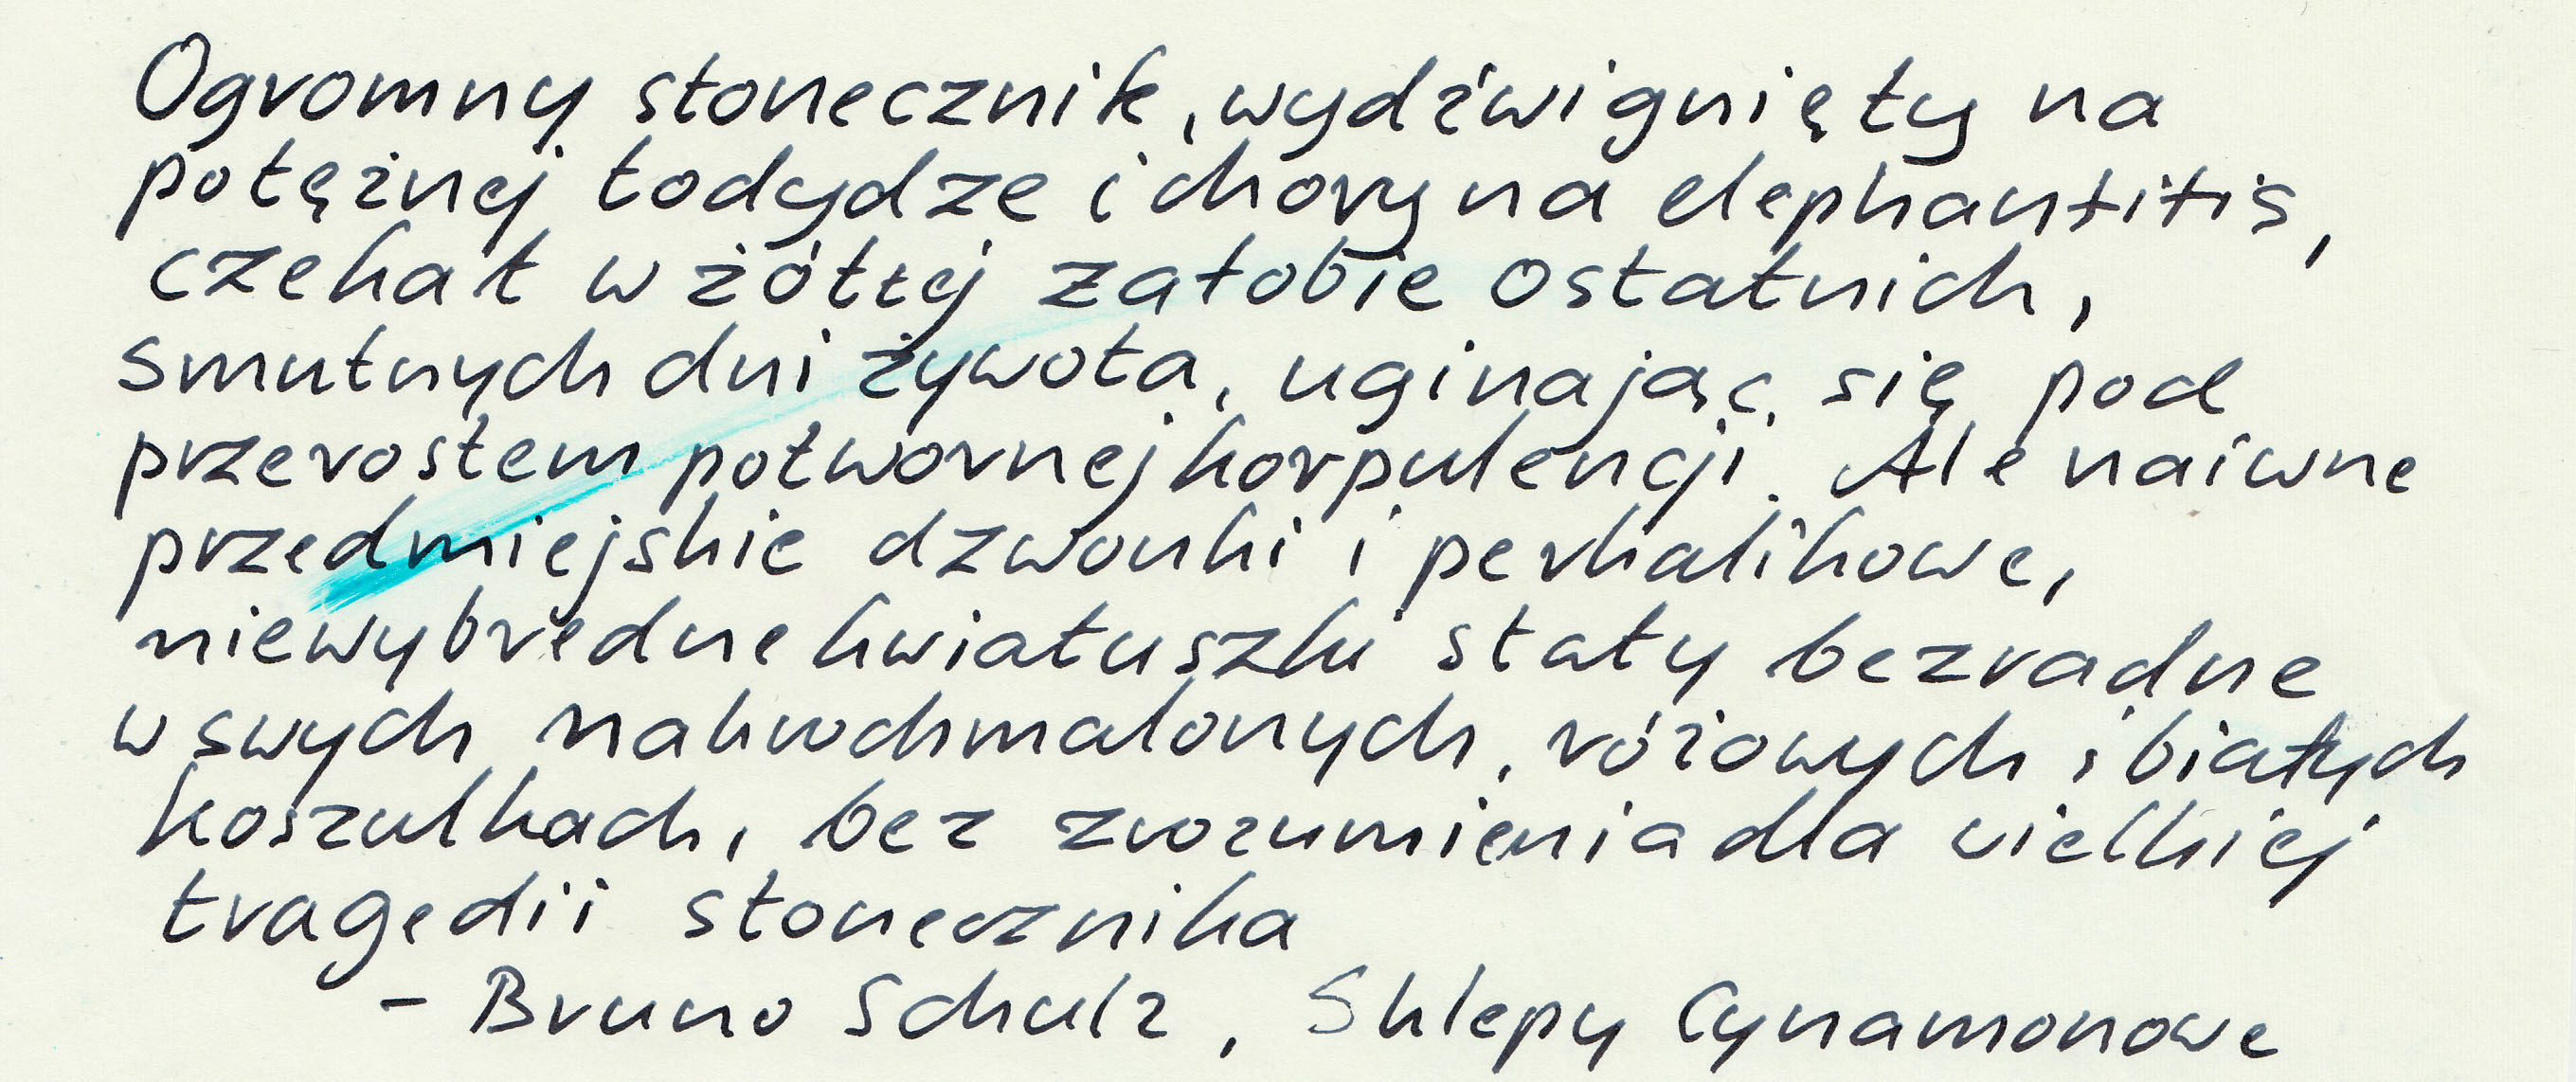 Ogromny słonecznik, wydźwignięty na
potężnej łodydze i chory na elephantitis,
czekał w żółtej żałobie ostatnich,
smutnych dni żywota, uginając się pod
przerostem potwornej korpulencji. Ale naiwne
przedmiejskie dzwonki i perkalikowe,
niewybredne kwiatuszki stały bezradne
w swych nakrochmalonych, różowych i białych
koszulkach, bez zrozumienia dla wielkiej
tragedii słonecznika
- Bruno Schulz, Sklepy Cynamonowe